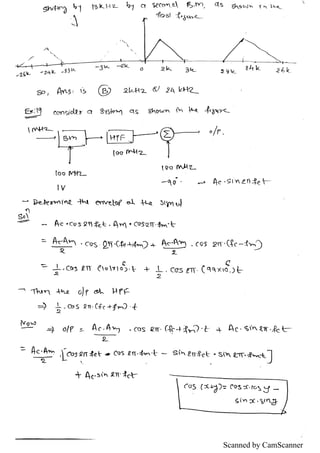 shifting by 13kHz by a second B.M, as shown in the
figure
-26k -24k -23k -3k -2k 0 2k 3k 23k 24k 26k
So, Ans: is (B) 2kHz & 24 kHz
Ex:19 consider a system as shown in the figure
1 MHz → BM → HPF → Σ → o/p.
100 MHz
100 MHz 100 MHz
1V -90° → Ac·sin2πfct
→ Determine the envelop of the signal
Sol
- Ac·cos2πfct·Am·cos2πfmt
= Ac·Am/2 · cos 2π·(fc+fm) + Ac·Am/2 · cos 2π·(fc-fm)
= 1/2 · cos 2π (101×10⁶)·t + 1/2 · cos 2π (99×10⁶)·t
→ Then the o/p of HPF
⇒ 1/2 · cos 2π·(fc+fm)·t
Now ⇒ o/p = Ac·Am/2 · cos 2π·(fc+fm)·t + Ac·sin 2π·fc·t
= Ac·Am/2 · [cos2πfct · cos 2π·fm·t - sin2πfct · sin 2π·fmt]
+ Ac·sin 2π·fct
cos (x+y) = cosx·cosy -
sinx·siny
Scanned by CamScanner